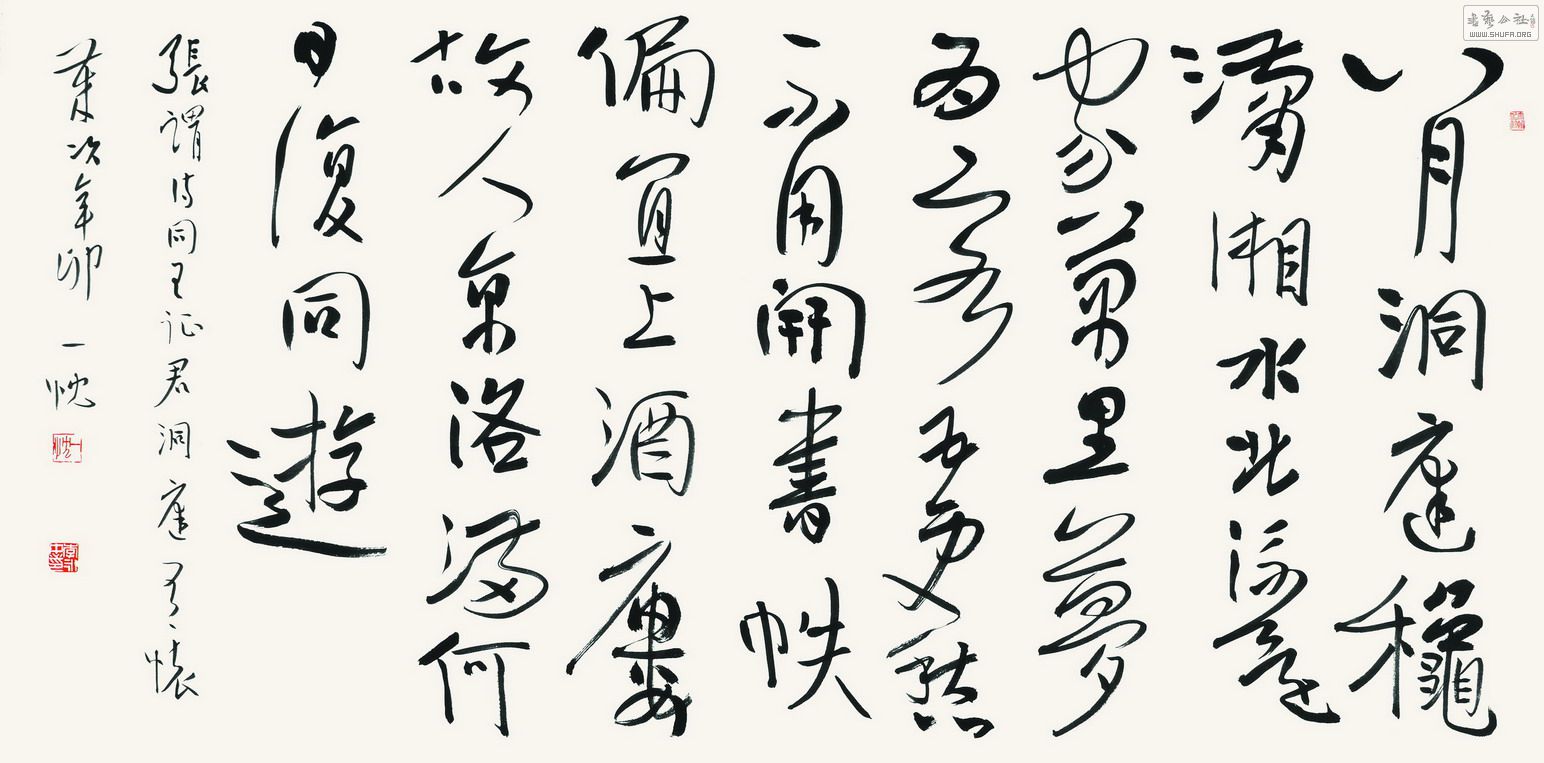 八月洞庭龝
瀟湘水北流還
家萬里夢
為客五更愁
不用開書帙
偏宜上酒廔
故人京洛滿何
日復同遊
張謂詩同王征君洞庭有懷
歲次辛卯 一忱
一忱
書藝公社
WWW.SHUFA.ORG